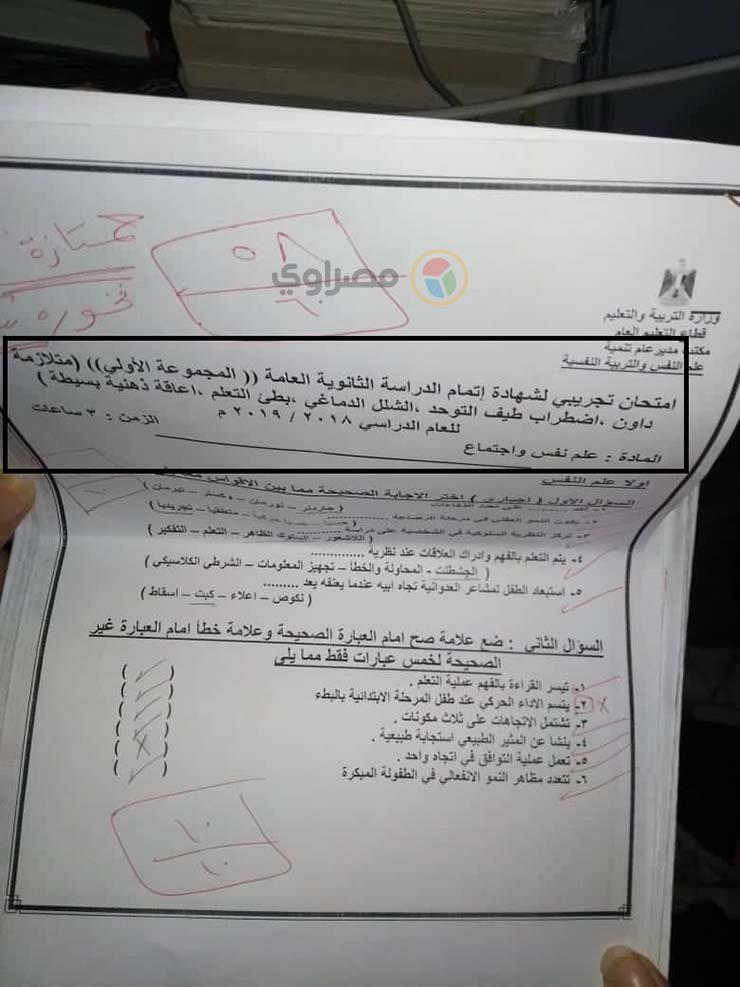 ممتازة
٥٨
٦٠
مصراوي
وزارة التربية والتعليم
قطاع التعليم العام
مكتب مدير عام تنمية
علم النفس والتربية النفسية
امتحان تجريبي لشهادة إتمام الدراسة الثانوية العامة (( المجموعة الأولي)) (متلازمة
داون ،اضطراب طيف التوحد ،الشلل الدماغي ،بطئ التعلم ،اعاقة ذهنية بسيطة )
للعام الدراسي ٢٠١٨ / ٢٠١٩ م
المادة : علم نفس واجتماع الزمن : ٣ ساعات
اولا علم النفس
السؤال الاول ( اجباري ) اختر الاجابة الصحيحة مما بين الاقواس
( جاردنر – ثورندن – – تيرمان )
٢- يكون النمو العقلي في مرحلة الرضاعة ............ – حسيا حركيا – منطقيا – تجريديا )
٣- تركز النظرية السلوكية في الشخصية على دراسة ............
( اللاشعور – السلوك الظاهر – التعلم – التفكير )
٤- يتم التعلم بالفهم وادراك العلاقات عند نظرية ............
( الجشطلت – المحاولة والخطأ – تجهيز المعلومات – الشرطي الكلاسيكي )
٥- استبعاد الطفل لمشاعر العدوانية تجاه ابيه عندما يعنفه يعد .........
( نكوص – اعلاء – كبت – اسقاط )
السؤال الثاني : ضع علامة صح امام العبارة الصحيحة وعلامة خطأ امام العبارة غير
الصحيحة لخمس عبارات فقط مما يلي
١- تيسر القراءة بالفهم عملية التعلم . ( ✓ )
٢- يتسم الاداء الحركي عند طفل المرحلة الابتدائية بالبطء ( ✓ )
٣- تشتمل الاتجاهات على ثلاث مكونات . ( ✓ )
٤- ينشا عن المثير الطبيعي استجابة طبيعية . ( ✓ )
٥- تعمل عملية التوافق في اتجاه واحد . ( X )
٦- تتعدد مظاهر النمو الانفعالي في الطفولة المبكرة ( ✓ )
١٠
١٠